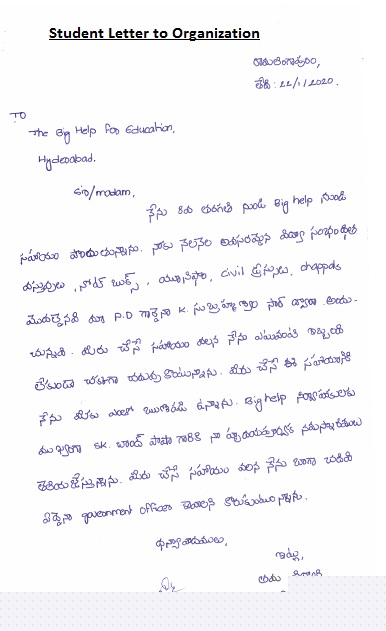 Student Letter to Organization
రామలింగాపురం,
తేది : 22/1/2020.
TO
The Big Help For Education,
Hyderabad.
Sir/madam,
నేను 8వ తరగతి నుండి Big help నుండి
సహాయం పొందుతున్నాను. నాకు నెలనెల అవసరమైన విద్యా సంభందిత
వస్తువులు, నోట్ బుక్స్, యూనిఫాం, civil డ్రస్సులు, chappals
మొదలైనవి మా P.D గారైన K. సుబ్రహ్మణ్యం సార్ ద్వారా అందు-
చున్నవి. మీరు చేసే సహాయం వలన నేను ఎటువంటి ఇబ్బంది
లేకుండా చక్కగా చదువు కొంటున్నాను. మీరు చేసే ఈ సహాయానికి
నేను మీకు ఎంతో ఋణపడి ఉన్నాను. Big help నిర్వాహకులకు
ముఖ్యంగా SK. చాంద్ పాషా గారికి నా హృదయపూర్వక నమస్కారములు
తెలియజేస్తున్నాను. మీరు చేసే సహాయం వలన నేను బాగా చదివి
ఏదైనా government officer కావాలని కోరుకుంటున్నాను.
ధన్యవాదములు,
ఇట్లు,